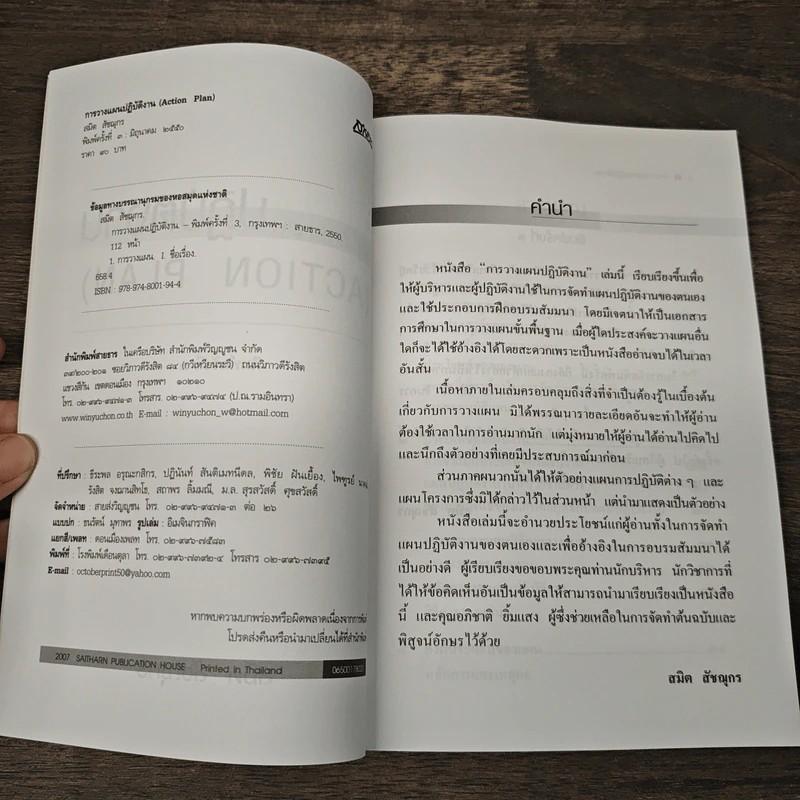 การวางแผนปฏิบัติงาน (Action Plan)
สมิต สัชฌุกร
พิมพ์ครั้งที่ ๓ : มิถุนาคม ๒๕๕๐
ราคา ๙๐ บาท
ข้อมูลทางบรรณานุกรมของหอสมุดแห่งชาติ
สมิต สัชฌุกร.
การวางแผนปฏิบัติงาน. – พิมพ์ครั้งที่ 3. กรุงเทพฯ : สายธาร, 2550.
112 หน้า
1. การวางแผน. I. ชื่อเรื่อง.
658.4
ISBN : 978-974-8001-94-4
สำนักพิมพ์สายธาร ในเครือบริษัท สำนักพิมพ์วิญญูชน จำกัด
๓๙/๒๐๐-๒๐๑ ซอยวิภาวดีรังสิต ๘๔ (ทวีเหวียนระวี) ถนนวิภาวดีรังสิต
แขวงสีกัน เขตดอนเมือง กรุงเทพฯ ๑๐๒๑๐
โทร. ๐๒-๙๙๖-๙๔๗๑-๓ โทรสาร. ๐๒-๙๙๖-๙๔๗๔ (ป.ณ.รามอินทรา)
www.winyuchon.co.th E-mail : winyuchon_w@hotmail.com
ที่ปรึกษา : ธีระพล อรุณะกสิกร, ปฏินันท์ สันติเมทนีดล, พิชัย ฝันเยื้อง, ไพฑูรย์
รังสิต จงฌานสิทโธ, สถาพร ลิ้มมณี, ม.ล. สุรสวัสดิ์ ศุขสวัสดิ์
จัดจำหน่าย : สายส่งวิญญูชน โทร. ๐๒-๙๙๖-๙๔๗๑-๓ ต่อ ๒๖
แบบปก : ธนรัตน์ มุทาพร รูปเล่ม : อิเมจินกราฟิค
แยกสี/เพลท : ดอนเมืองเพลท โทร. ๐๒-๙๙๖-๗๕๘๓
พิมพ์ที่ : โรงพิมพ์เดือนตุลา โทร. ๐๒-๙๙๖-๗๓๙๒-๔ โทรสาร ๐๒-๙๙๖-๗๓๙๕
E-mail : octoberprint50@yahoo.com
หากพบความบกพร่องหรือผิดพลาดเนื่องจากการพิมพ์
โปรดส่งคืนหรือนำมาเปลี่ยนได้ที่สำนักพิมพ์
2007 SAITHARN PUBLICATION HOUSE Printed in Thailand
คำนำ
หนังสือ “การวางแผนปฏิบัติงาน” เล่มนี้ เรียบเรียงขึ้นเพื่อ
ให้ผู้บริหารและผู้ปฏิบัติงานใช้ในการจัดทำแผนปฏิบัติงานของตนเอง
และใช้ประกอบการฝึกอบรมสัมมนา โดยมีเจตนาให้เป็นเอกสาร
การศึกษาในการวางแผนขั้นพื้นฐาน เมื่อผู้ใดประสงค์จะวางแผนอื่น
ใดก็จะได้ใช้อ้างอิงได้โดยสะดวกเพราะเป็นหนังสืออ่านจบได้ในเวลา
อันสั้น
เนื้อหาภายในเล่มครอบคลุมถึงสิ่งที่จำเป็นต้องรู้ในเบื้องต้น
เกี่ยวกับการวางแผน มิได้พรรณนารายละเอียดอันจะทำให้ผู้อ่าน
ต้องใช้เวลาในการอ่านมากนัก แต่มุ่งหมายให้ผู้อ่านได้อ่านไปคิดไป
และนึกถึงตัวอย่างที่เคยมีประสบการณ์มาก่อน
ส่วนภาคผนวกนั้นได้ให้ตัวอย่างแผนการปฏิบัติต่าง ๆ และ
แผนโครงการซึ่งมิได้กล่าวไว้ในส่วนหน้า แต่นำมาแสดงเป็นตัวอย่าง
หนังสือเล่มนี้จะอำนวยประโยชน์แก่ผู้อ่านทั้งในการจัดทำ
แผนปฏิบัติงานของตนเองและเพื่ออ้างอิงในการอบรมสัมมนาได้
เป็นอย่างดี ผู้เรียบเรียงขอขอบพระคุณท่านนักบริหาร นักวิชาการที่
ได้ให้ข้อคิดเห็นอันเป็นข้อมูลให้สามารถนำมาเรียบเรียงเป็นหนังสือ
นี้ และคุณอภิชาติ ยิ้มแสง ผู้ซึ่งช่วยเหลือในการจัดทำต้นฉบับและ
พิสูจน์อักษรไว้ด้วย
สมิต สัชฌุกร